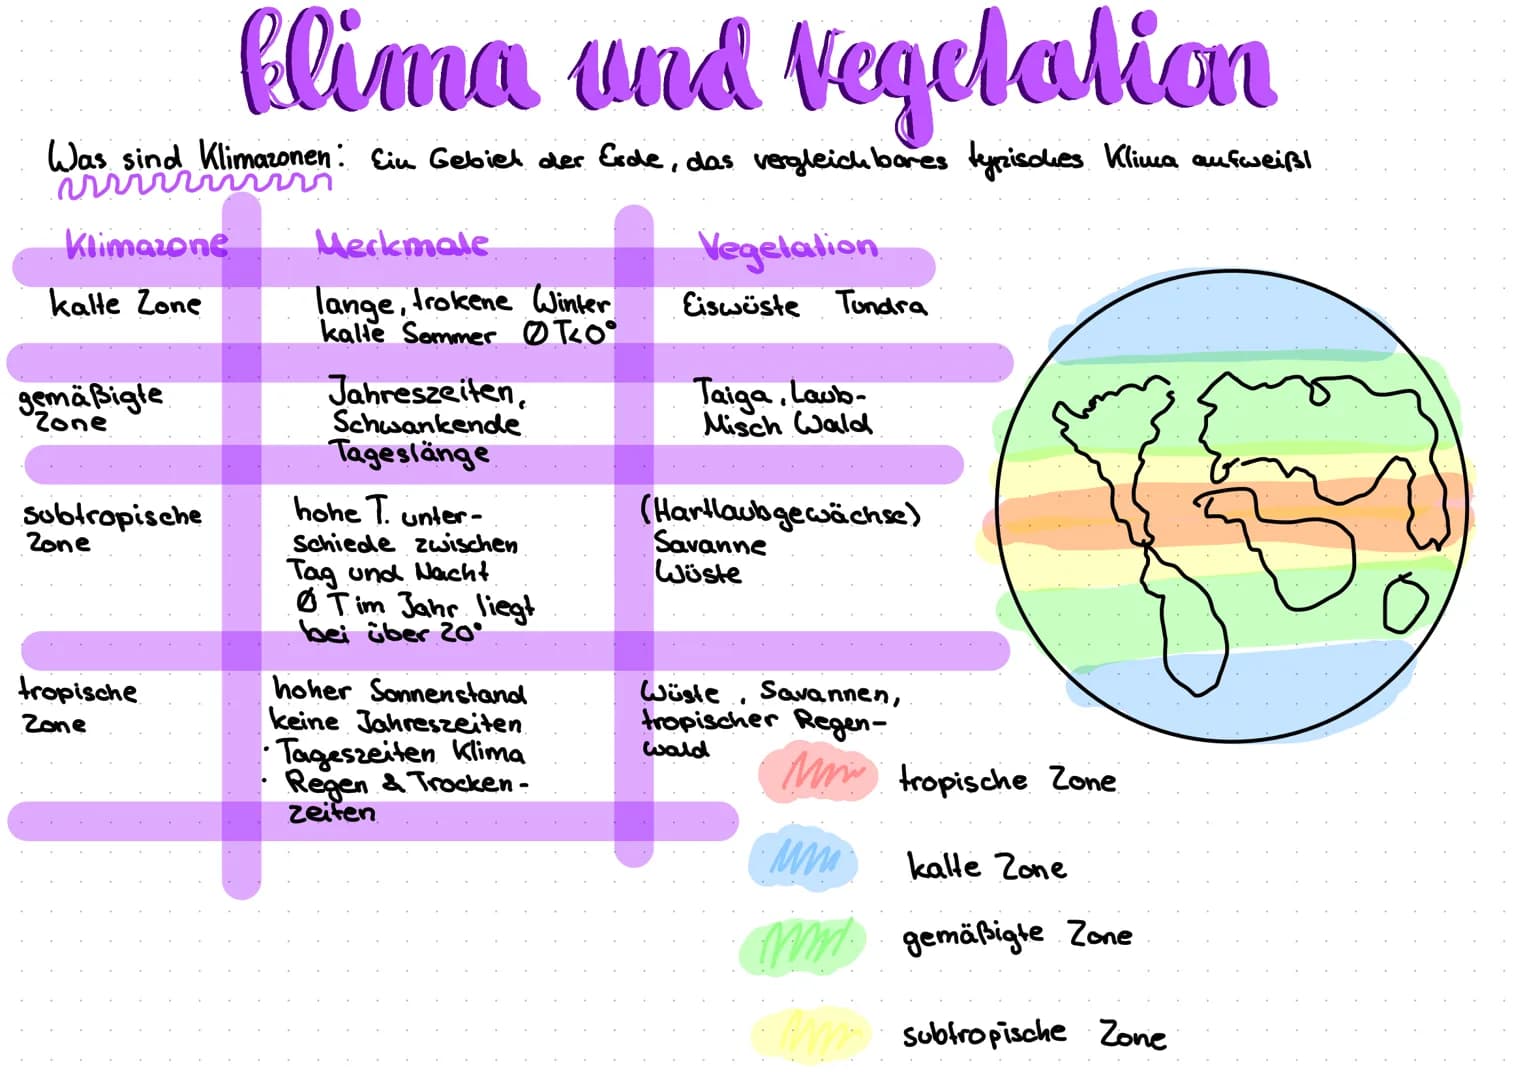 Klima und Vegetation
Was sind Klimazonen: Ein Gebiet der Erde, das vergleichbares typisches Klima aufweißt
Klimazone Merkmale Vegetation
kalte Zone
lange, trokene Winter
kalte Sommer Ø T<0°
Eiswüste Tundra
gemäßigte
Zone
Jahreszeiten,
Schwankende
Tageslänge
Taiga, Laub-
Misch Wald
subtropische
Zone
hohe T. unter-
schiede zwischen
Tag und Nacht
Ø T im Jahr liegt
bei über 20°
(Hartlaubgewächse)
Savanne
Wüste
tropische
Zone
hoher Sonnenstand
keine Jahreszeiten
· Tageszeiten Klima
· Regen & Trocken-
zeiten
Wüste, Savannen,
tropischer Regen-
wald
tropische Zone
kalte Zone
gemäßigte Zone
subtropische Zone